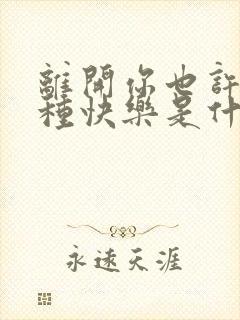 離開你也許
種快樂是什
永遠天涯